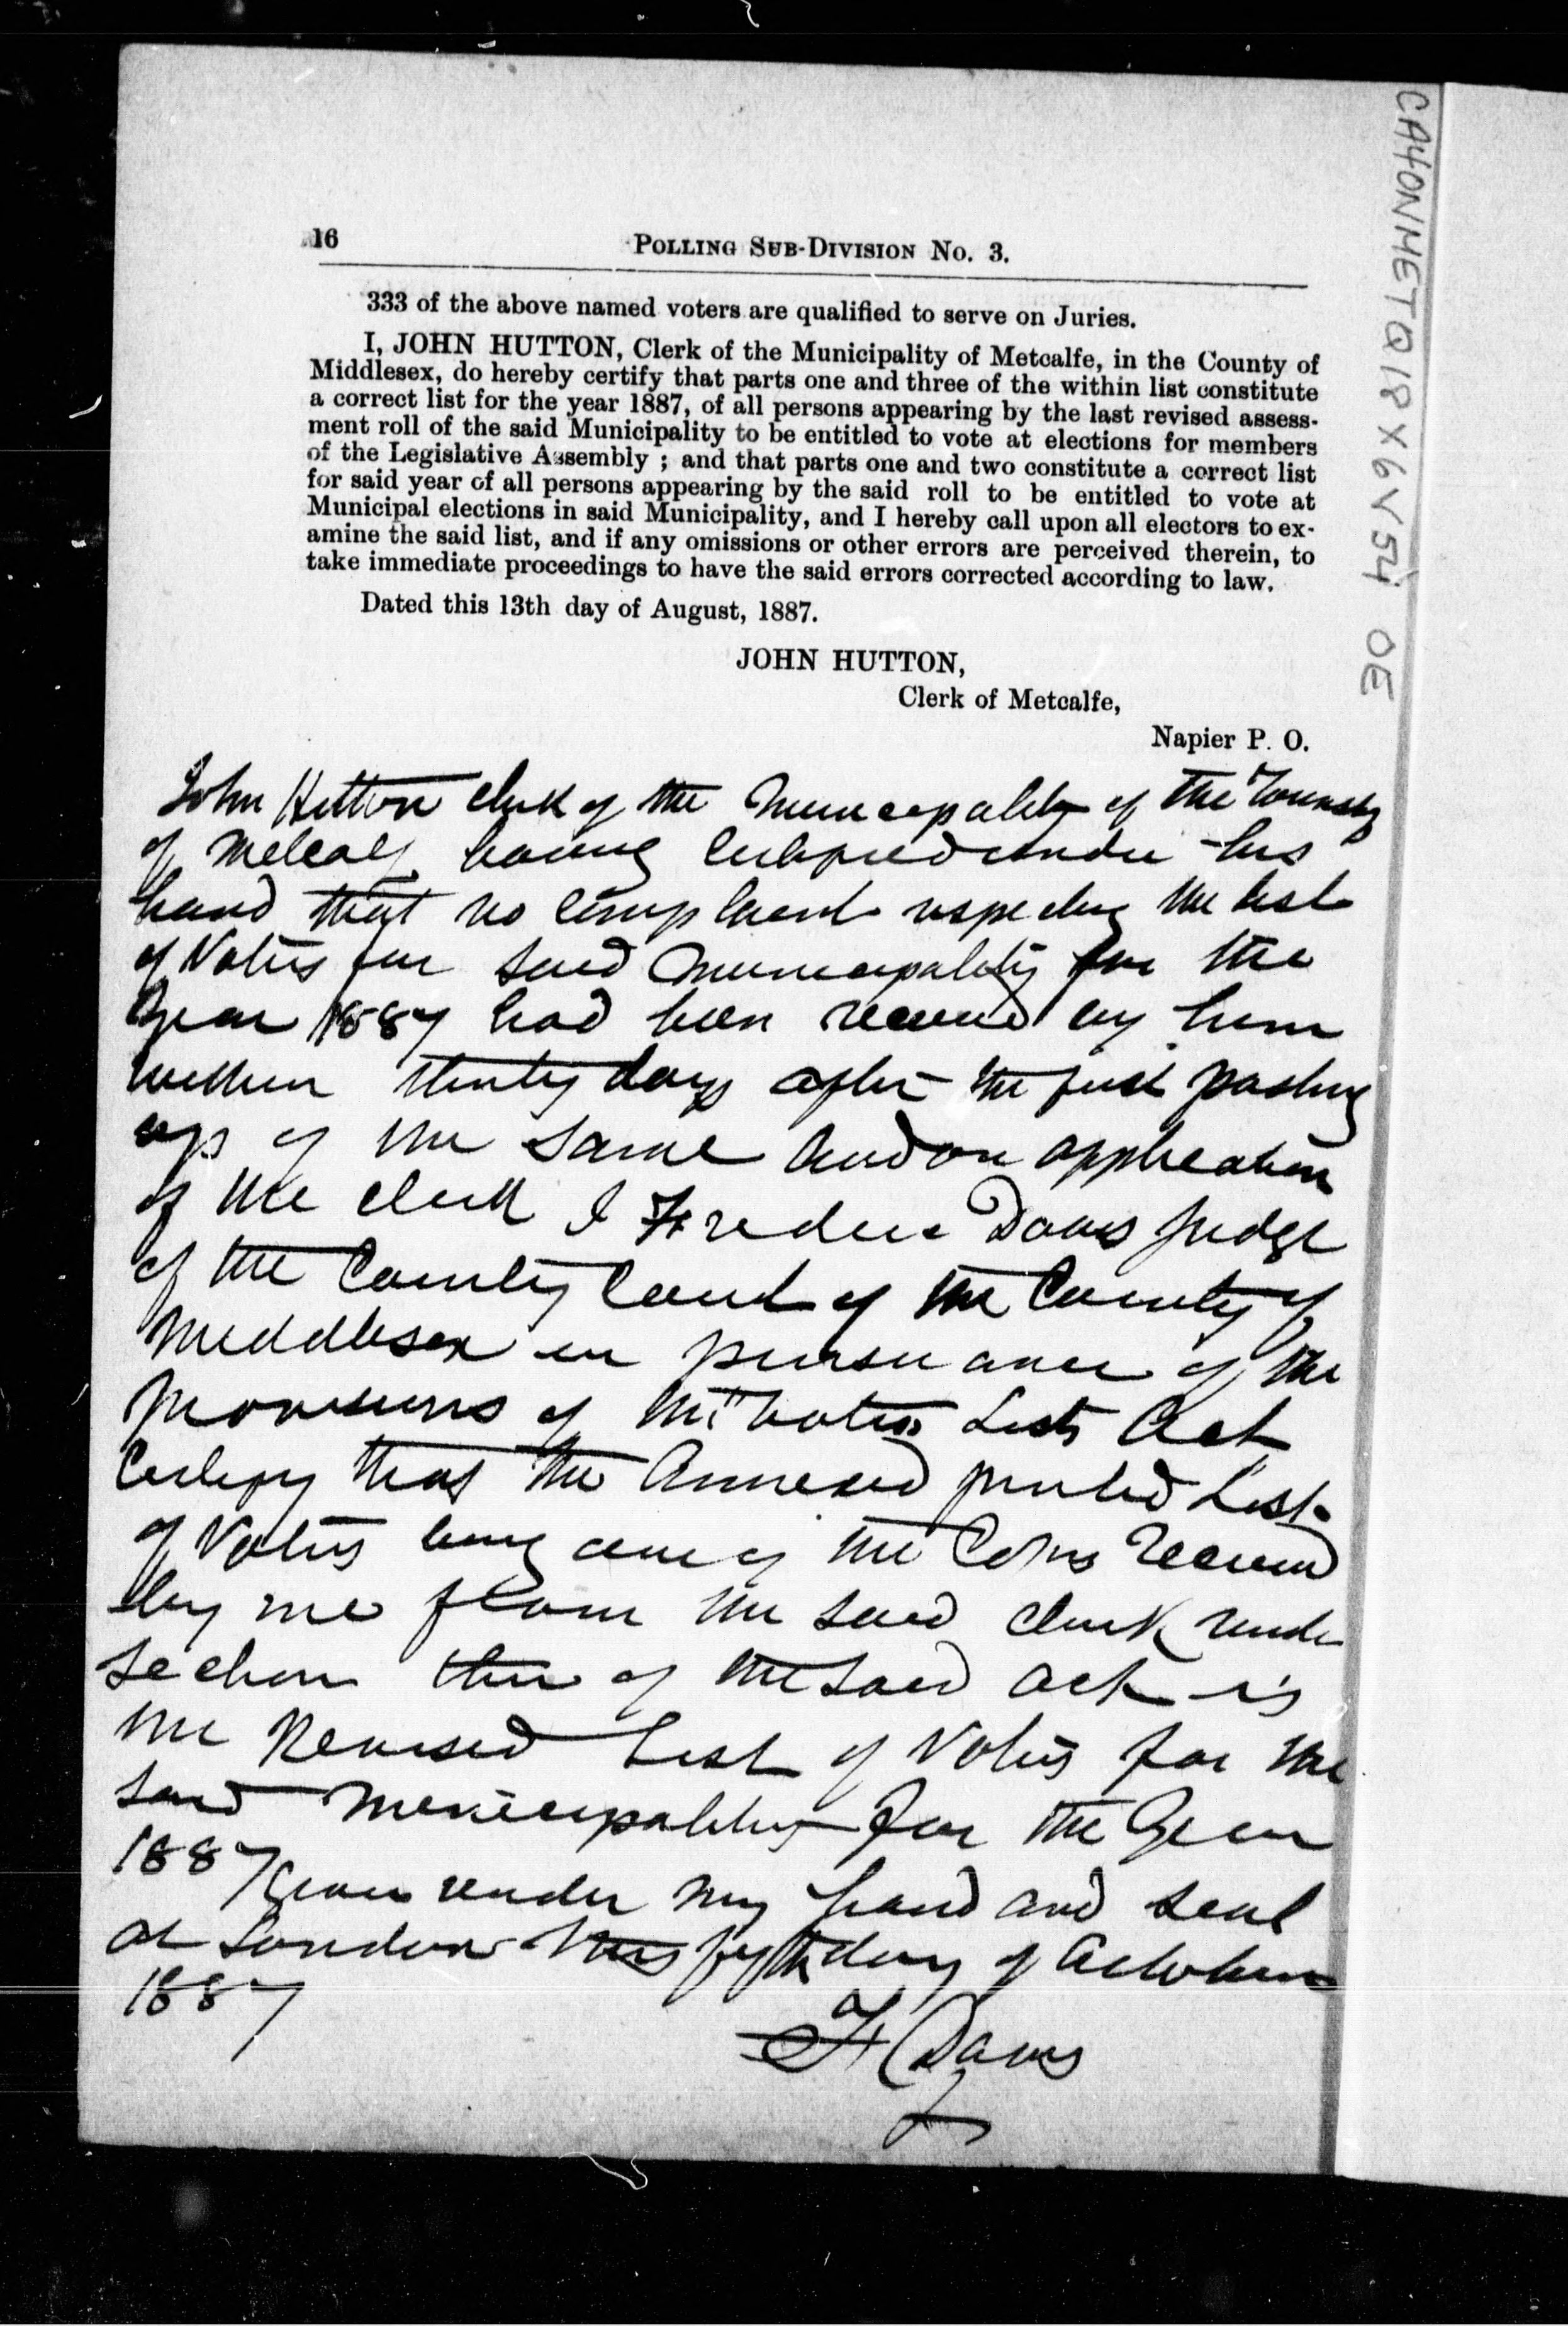 16
POLLING SUB-DIVISION NO. 3.
333 of the above named voters are qualified to serve on Juries.
I, JOHN HUTTON, Clerk of the Municipality of Metcalfe, in the County of
Middlesex, do hereby certify that parts one and three of the within list constitute
a correct list for the year 1887, of all persons appearing by the last revised assess-
ment roll of the said Municipality to be entitled to vote at elections for members
of the Legislative Assembly ; and that parts one and two constitute a correct list
for said year of all persons appearing by the said roll to be entitled to vote at
Municipal elections in said Municipality, and I hereby call upon all electors to ex-
amine the said list, and if any omissions or other errors are perceived therein, to
take immediate proceedings to have the said errors corrected according to law.
Dated this 13th day of August, 1887.
JOHN HUTTON,
Clerk of Metcalfe,
Napier P. O.
John Hutton clerk of the Municipality of the Township
of Metcalf having certified under his
hand that no complaint respecting the list
of Voters for said Municipality for the
Year 1887 had been received by him
within thirty days after the first posting
up of the same and on application
of the clerk I Frederic Davis Judge
of the County Court of the County of
Middlesex in pursuance of the
provisions of the "Voters Lists Act
Certify that the Annexed printed List
of Voters being one of the Copies received
by me from the said clerk under
section three of the said act is
the Revised List of Voters for the
said Municipality for the Year
1887 Given under my hand and seal
at London this fifth day of October
1887
F Davis
CA4ONMETQ18X6V54 OE